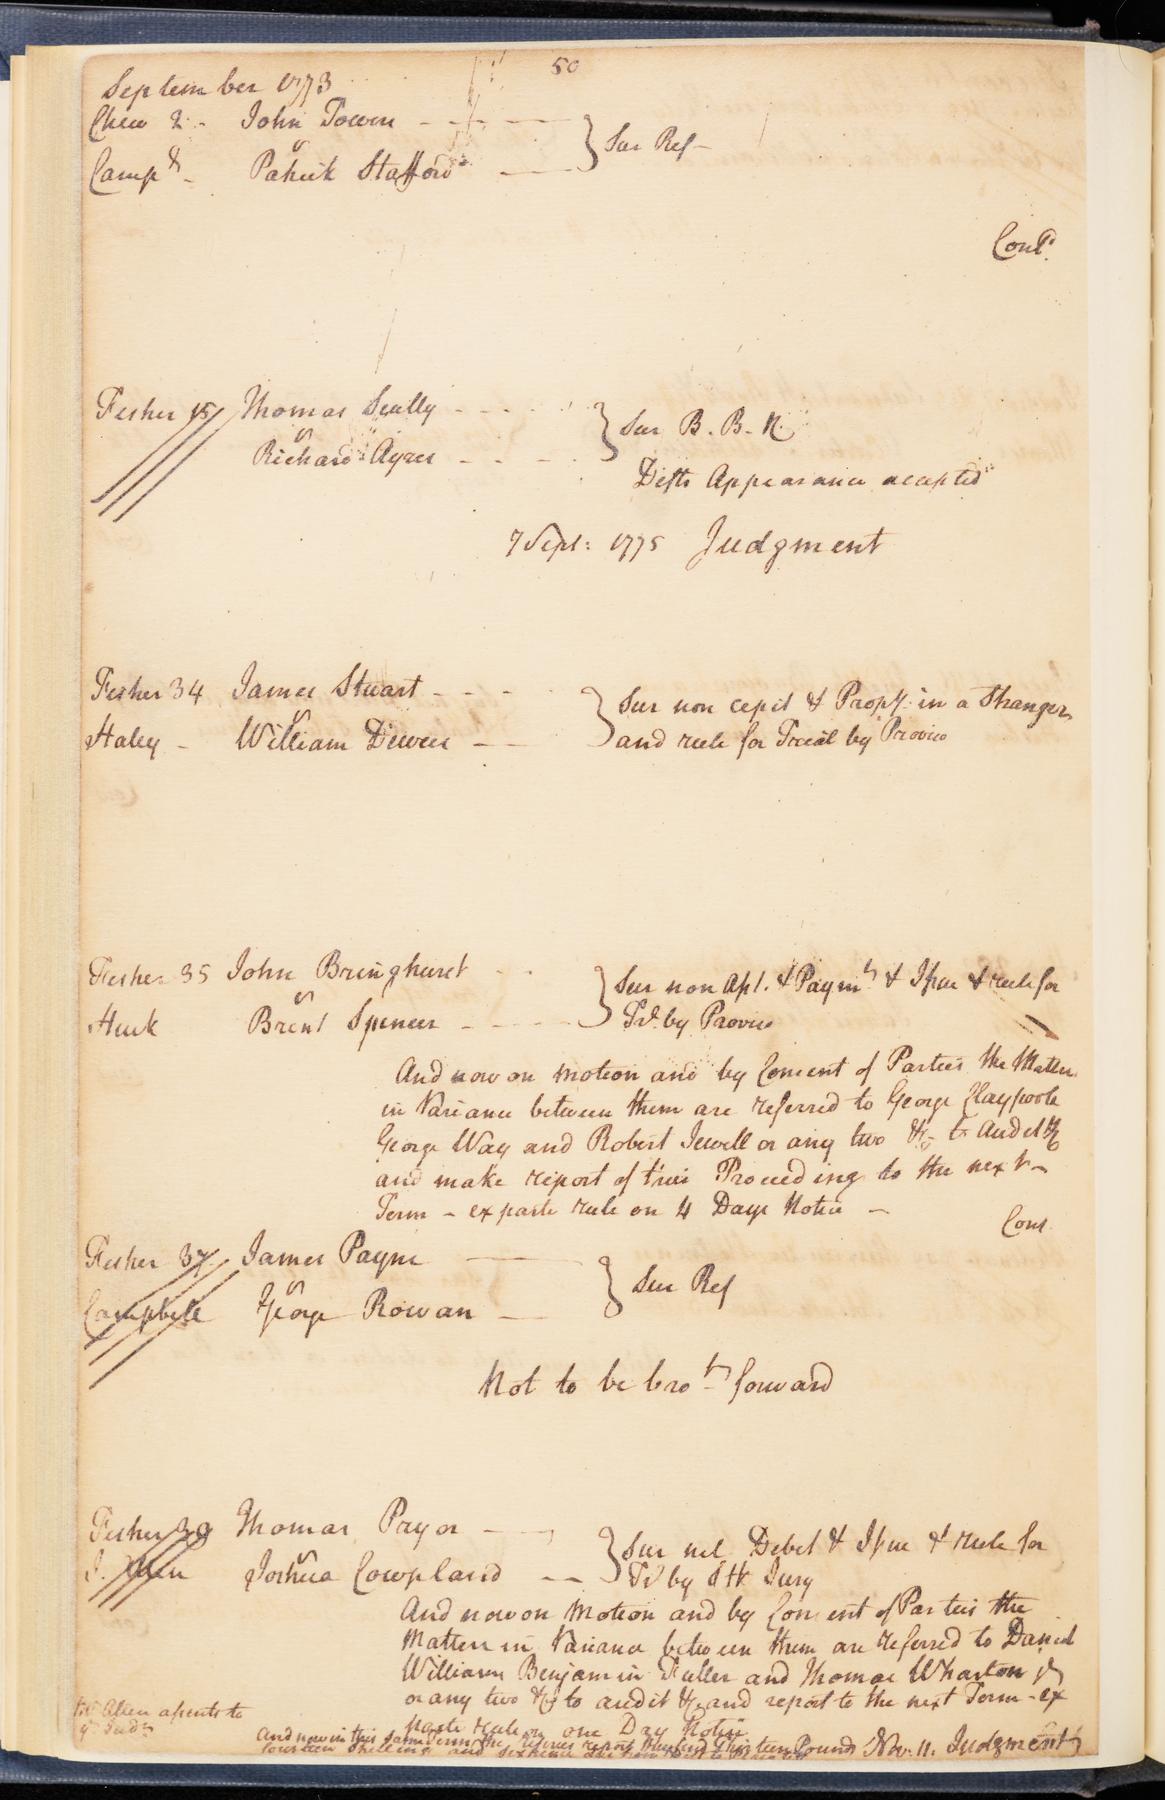 50
September 1773
Chew 2 - John Towers - - -
v
Camp^l - Patrick Stafford - } Sur Ref -
Cont^d.
Fisher 15 Thomas Scully - - - -
v
Richard Ayres - - - - } Sur B. B. N.
Defts Appearance accepted
7 Sept: 1775 Judgment
Fisher 34 James Stuart - - -
v
Haley - William Dewees -
} Sur non cepit & Prop^y. in a Stranger
and rule for Trial by Proviso
Fisher 35 John Bringhurst - -
v
Huck Brent Spencer - - - -
} Sur non Ast. & Paym^t & Issue & rule for
Tr^l. by Proviso
And now on Motion and by Consent of Parties the Matters
in Variance between them are referred to George Claypoole
George Way and Robert Jewell or any two &c to Audit &c
and make report of their Proceedings to the next -
Term - ex parte rule on 4 Days Notice -
Cont.
Fisher 37 James Payne
v
Campbell George Rowan -
} Sur Ref
Not to be bro^t forward
Fisher 39 Thomas Pryor -
v
J. Allen Joshua Cowpland - -
} Sur nil Debet & Issue & rule for
Tr^l by Jury
And now on Motion and by Consent of Parties the
Matters in Variance between them are referred to Daniel
Williams Benjamin Fuller and Thomas Wharton J^r
or any two &c to audit &c and report to the next Term - ex
parte rule on one Day Notice
Allen assents to
Jud^t
And now in this same Term the referees report Thirteen Pounds Nov. 11. Judgment
fourteen shillings and